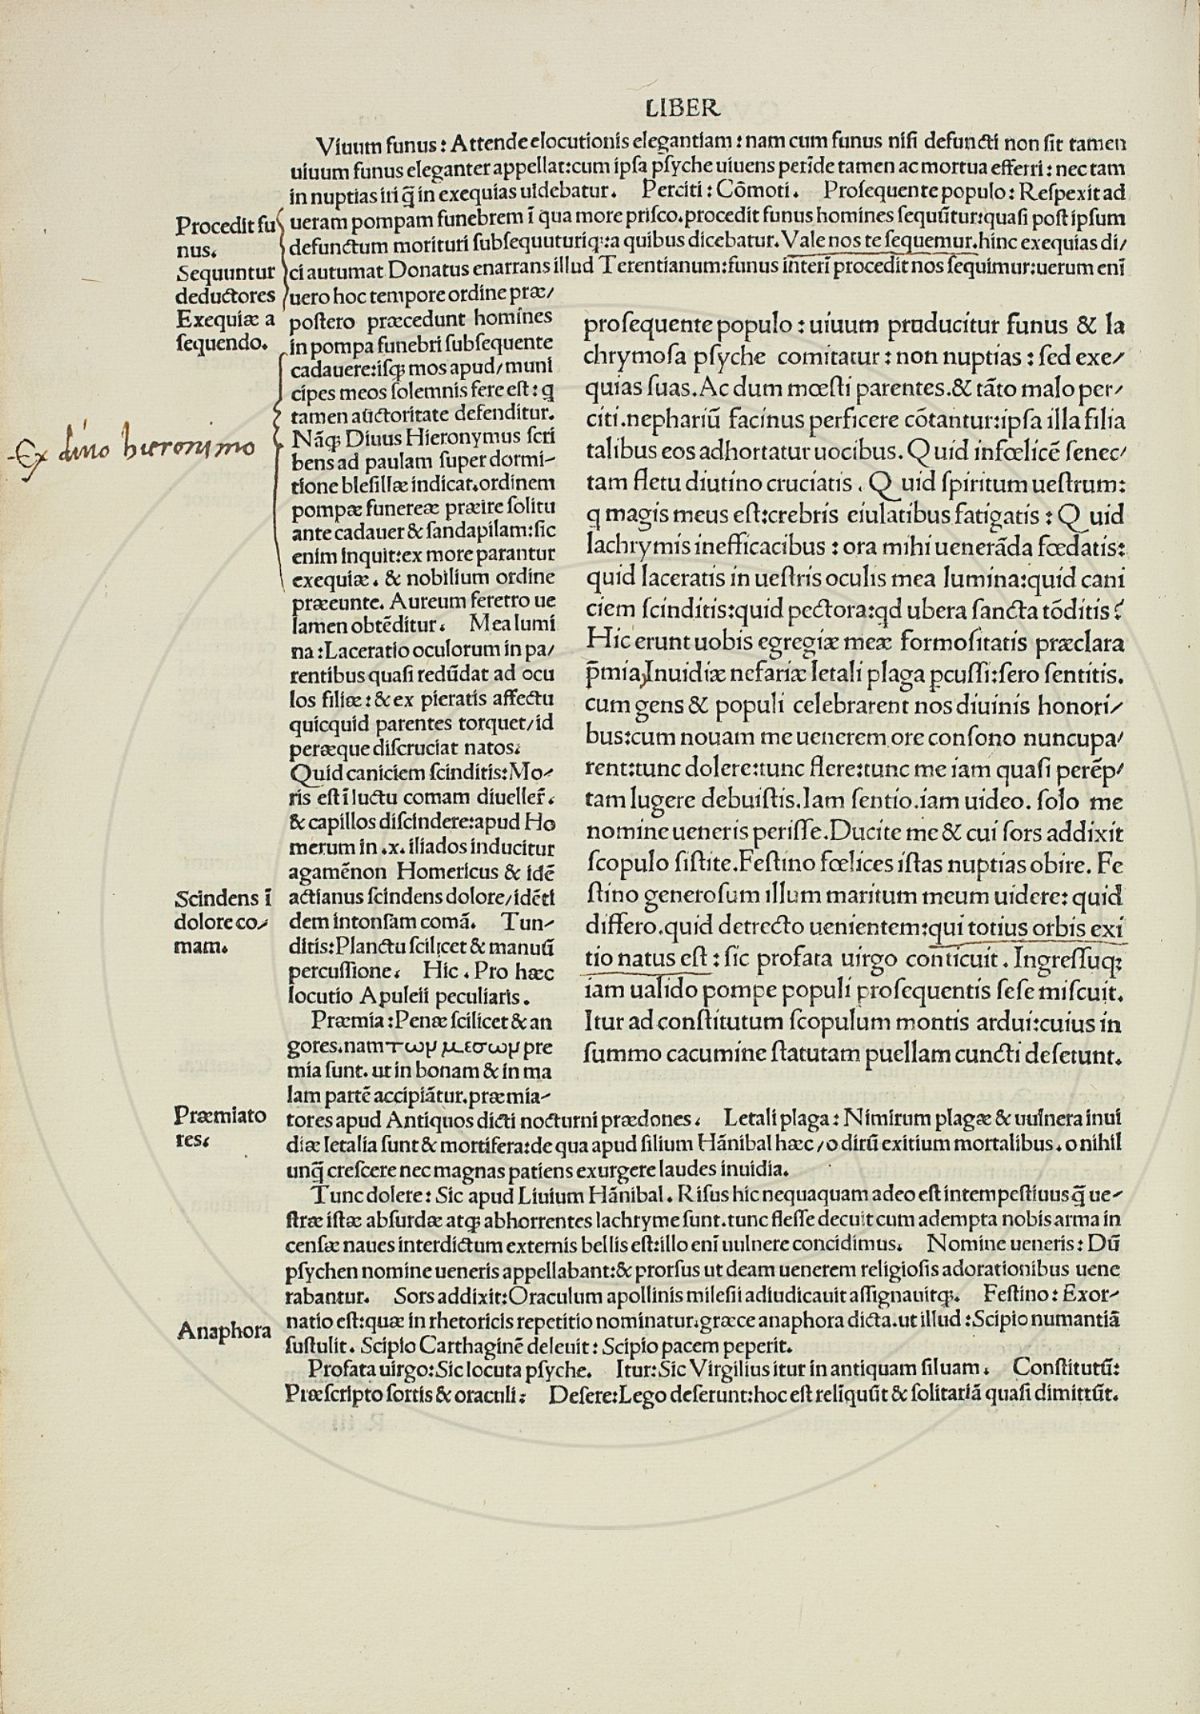 LIBER
Viuum funus: Attende elocutionis elegantiam: nam cum funus nisi defuncti non sit tamen
uiuum funus eleganter appellat:cum ipsa psyche uiuens perĩde tamen ac mortua efferri: nec tam
in nuptias iri q̃ in exequias uidebatur. Perciti: Cõmoti. Prosequente populo: Respexit ad
ueram pompam funebrem ĩ qua more prisco.procedit funus homines sequũtur:quasi post ipsum
defunctum morituri subsequuturiq;:a quibus dicebatur. Vale nos te sequemur. hinc exequias di/
ci autumat Donatus enarrans illud Terentianum:funus ĩnterĩ procedit nos sequimur:uerum enĩ
uero hoc tempore ordine præ/
postero præcedunt homines
in pompa funebri subsequente
cadauere:isq; mos apud/muni
cipes meos solemnis fere est: q
tamen auctoritate defenditur.
Nãq; Diuus Hieronymus scri
bens ad paulam super dormi-
tione blesillæ indicat.ordinem
pompæ funereæ præire solitu
ante cadauer & sandapilam:sic
enim inquit:ex more parantur
exequiæ. & nobilium ordine
præeunte. Aureum feretro ue
lamen obtẽditur. Mea lumi
na:Laceratio oculorum in pa/
rentibus quasi redũdat ad ocu
los filiæ:& ex pieratis affectu
quicquid parentes torquet/id
peræque discruciat natos.
Quid caniciem scinditis:Mo-
ris est ĩ luctu comam diueller̃.
& capillos discindere:apud Ho
merum in .x. iliados inducitur
agamẽnon Homericus & idẽ
actianus scindens dolore/idẽti
dem intonsam comã. Tun-
ditis:Planctu scilicet & manuũ
percussione. Hic. Pro hæc
locutio Apuleii peculiaris.
Præmia:Penæ scilicet & an
gores.nam τωμ μεσωμ pre
mia sunt. ut in bonam & in ma
lam partẽ accipiãtur.præmia-
tores apud Antiquos dicti nocturni prædones. Letali plaga: Nimirum plagæ & uulnera inui
diæ letalia sunt & mortifera:de qua apud silium Hãnibal hæc/o dirũ exitium mortalibus. o nihil
unq̃ crescere nec magnas patiens exurgere laudes inuidia.
Tunc dolere: Sic apud Liuium Hãnibal. Risus hic nequaquam adeo est intempestiuus q̃ ue-
stræ istæ absurdæ atq; abhorrentes lachryme sunt.tunc flesse decuit cum adempta nobis arma in
censæ naues interdictum externis bellis est:illo enĩ uulnere concidimus. Nomine ueneris: Dũ
psychen nomine ueneris appellabant:& prorsus ut deam uenerem religiosis adorationibus uene
rabantur. Sors addixit:Oraculum apollinis milesii adiudicauit assignauitq;. Festino: Exor-
natio est:quæ in rhetoricis repetitio nominatur.græce anaphora dicta.ut illud: Scipio numantiã
sustulit. Scipio Carthaginẽ deleuit: Scipio pacem peperit.
Profata uirgo:Sic locuta psyche. Itur:Sic Virgilius itur in antiquam siluam. Constitutũ:
Præscripto sortis & oraculi: Desere:Lego deserunt:hoc est relĩquũt & solitariã quasi dimittũt.
prosequente populo: uiuum pruducitur funus & la
chrymosa psyche comitatur: non nuptias: sed exe/
quias suas. Ac dum mœsti parentes.& tãto malo per/
citi.nephariũ facinus perficere cõtantur:ipsa illa filia
talibus eos adhortatur uocibus. Quid infœlicẽ senec/
tam fletu diutino cruciatis. Quid spiritum uestrum:
q magis meus est:crebris eiulatibus fatigatis: Quid
lachrymis inefficacibus: ora mihi uenerãda fœdatis:
quid laceratis in uestris oculis mea lumina:quid cani
ciem scinditis:quid pectora:qd ubera sancta tõditis?
Hic erunt uobis egregiæ meæ formositatis præclara
p̃mia,Inuidiæ nefariæ letali plaga pcussi:sero sentitis.
cum gens & populi celebrarent nos diuinis honori/
bus:cum nouam me uenerem ore consono nuncupa/
rent:tunc dolere:tunc flere:tunc me iam quasi perẽp/
tam lugere debuistis.Iam sentio.iam uideo. solo me
nomine ueneris perisse.Ducite me & cui sors addixit
scopulo sistite.Festino fœlices istas nuptias obire. Fe
stino generosum illum maritum meum uidere: quid
differo.quid detrecto uenientem:qui totius orbis exi
tio natus est: sic profata uirgo conticuit. Ingressuq;
iam ualido pompe populi prosequentis sese miscuit.
Itur ad constitutum scopulum montis ardui:cuius in
summo cacumine statutam puellam cuncti desetunt.
Procedit fu
nus.
Sequuntur
deductores
Exequiæ a
sequendo.
Ex diuo hieronimo
Scindens ĩ
dolore co-
mam.
Præmiato
res.
Anaphora